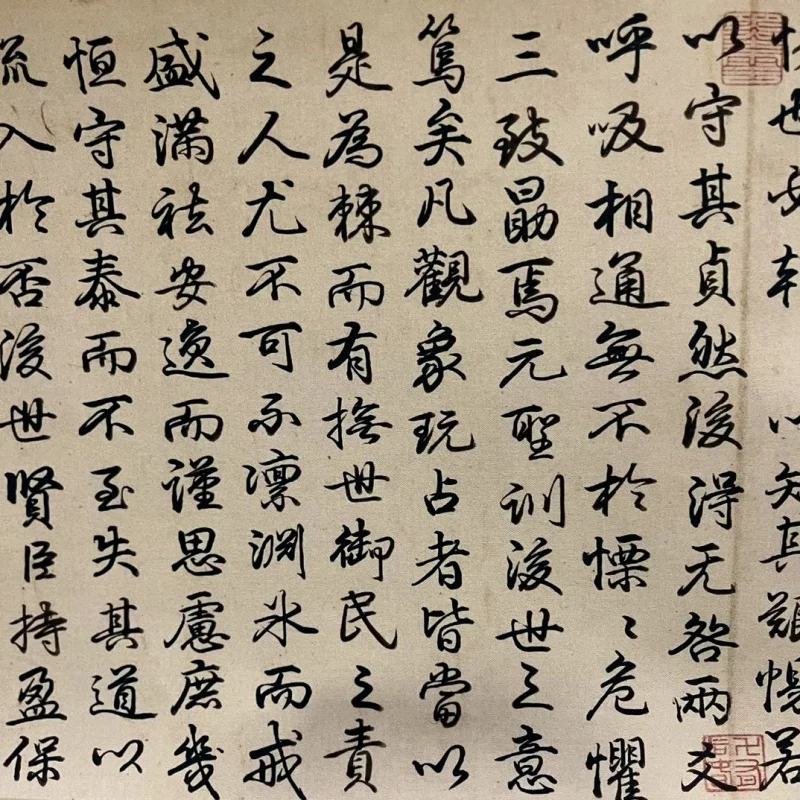 以知其艱惕若
以守其貞然後得无咎兩爻
呼吸相通無不於慄〻危懼
三致勗焉元聖訓後世之意
篤矣凡觀象玩占者皆當以
是為棘而有撫世御民之責
之人尤不可不凛淵冰而戒
盛滿祛安逸而謹思慮庶幾
恒守其泰而不至失其道以
流入於否後世賢臣持盈保